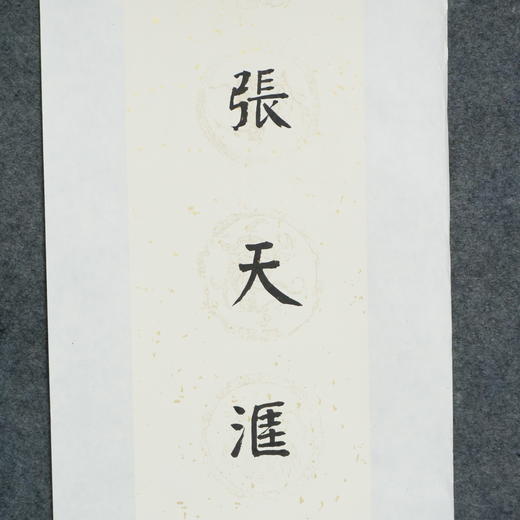 張天涯